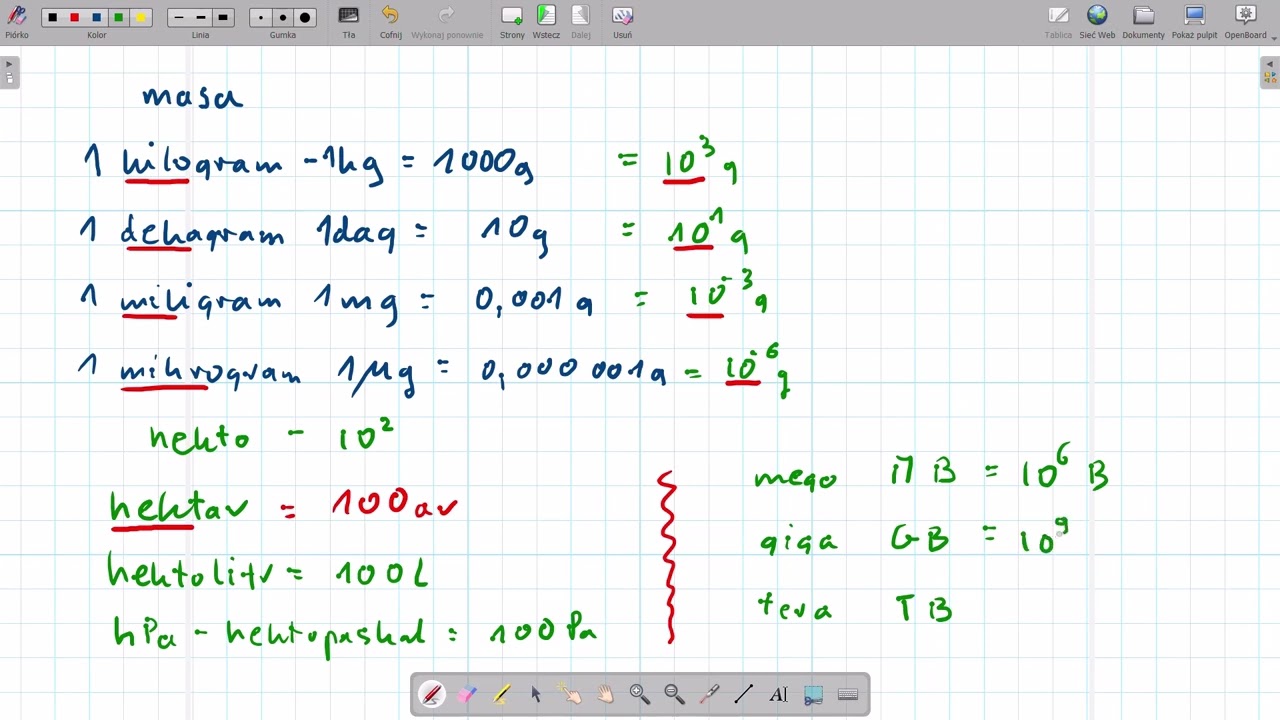 Piórko Kolor Linia Gumka Tła Cofnij Wykonaj ponownie Strony Wstecz Dalej Usuń Tablica Sieć Web Dokumenty Pokaż pulpit OpenBoard
masa
1 kilogram - 1kg = 1000g = 10³g
1 dekagram 1dag = 10g = 10¹g
1 miligram 1mg = 0,001g = 10⁻³g
1 mikrogram 1μg = 0,000 001g = 10⁻⁶g
hekto - 10²
hektar = 100ar
hektolitr = 100l
hPa - hektopaskal = 100Pa
mega MB = 10⁶ B
giga GB = 10⁹
tera TB